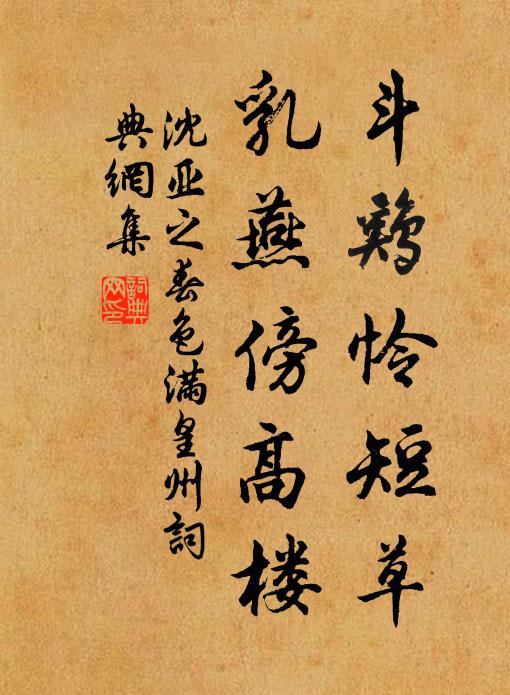 斗鷄怜短草
乳燕傍高楼
沈亚之春色满皇州詞
典網集
詞典
网印